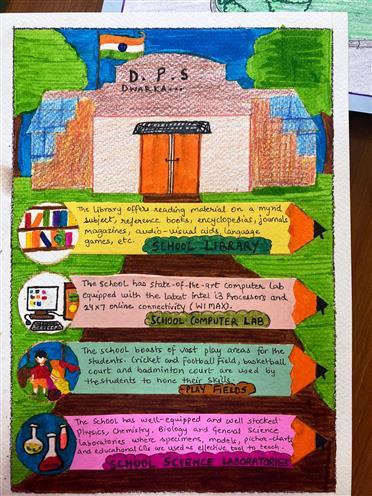 D. P. S
DWARKA...
The library offers reading material on a myriad
subject, reference books, encyclopedias, journals
magazines, audio-visual aids, language
games, etc.
SCHOOL LIBRARY
The school has state-of-the-art Computer Lab
equipped with the latest intel i3 Processors and
24x7 online connectivity (WIMAX).
SCHOOL COMPUTER LAB
The school boasts of vast play areas for the
students. Cricket and Football field, basketball
court and badminton court are used by
the students to hone their skills.
PLAY FIELDS
The School has well-equipped and well stocked
Physics, Chemistry, Biology and General Science
laboratories where specimens, models, picture-charts
and educational CDs are used as effective tool to teach.
SCHOOL SCIENCE LABORATORIES